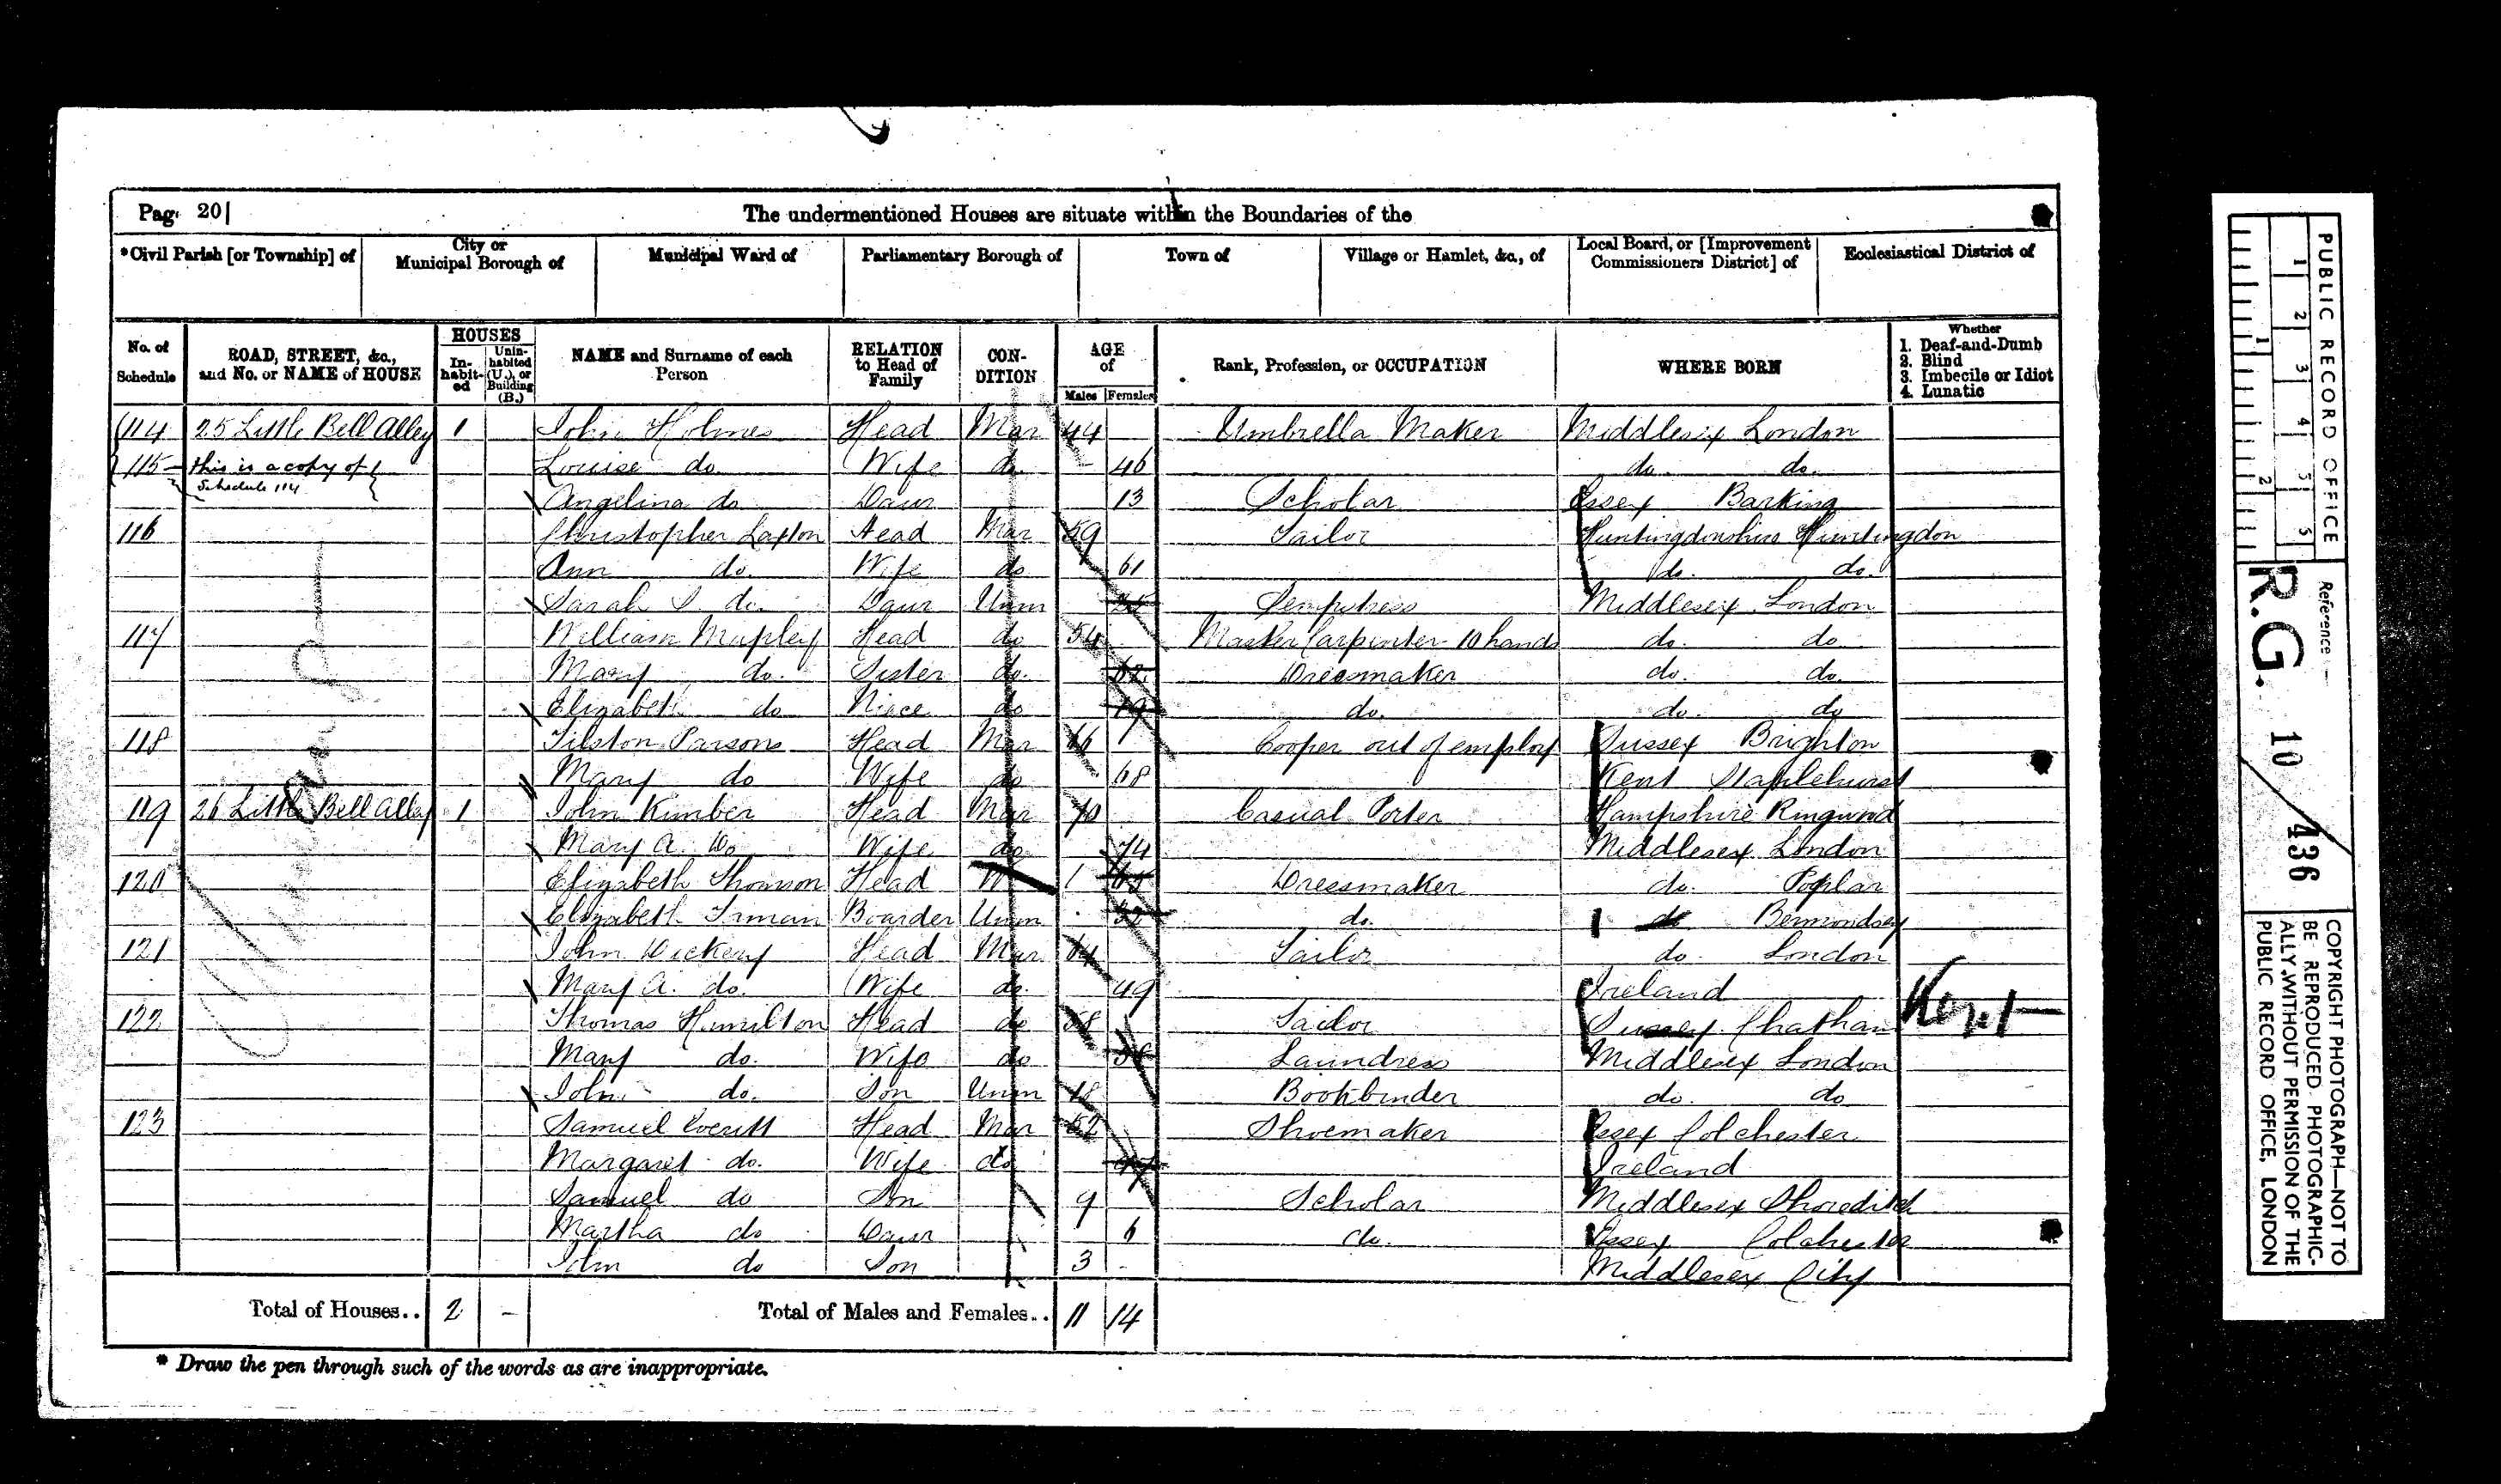 Page 20
The undermentioned Houses are situate within the Boundaries of the
*Civil Parish [or Township] of
City or Municipal Borough of
Municipal Ward of
Parliamentary Borough of
Town of
Village or Hamlet, &c., of
Local Board, or [Improvement Commissioners District] of
Ecclesiastical District of
No. of Schedule
ROAD, STREET, &c., and No. or NAME of HOUSE
HOUSES
In-habit-ed
Unin-habited (U.), or Building (B.)
NAME and Surname of each Person
RELATION to Head of Family
CON-DITION
AGE of
Males Females
Rank, Profession, or OCCUPATION
WHERE BORN
Whether
1. Deaf-and-Dumb
2. Blind
3. Imbecile or Idiot
4. Lunatic
114 25 Little Bell Alley 1 John Holmes Head Mar 44 Umbrella Maker Middlesex London
115 this is a copy of Schedule 114 Louise do. Wife do. 46 do. do.
Angelina do Daur 13 Scholar Essex Barking
116 Christopher Laxton Head Mar 59 Tailor Huntingdonshire Huntingdon
Ann do. Wife do 61 do. do.
Sarah do. Daur Unm Sempstress Middlesex London
117 William Mapley Head do 54 Master Carpenter 10 hands do. do
Mary do. Sister do. 62 Dressmaker do. do.
Elizabeth do Niece do 19 do. do. do
118 Tilston Parsons Head Mar 66 Cooper out of employ Sussex Brighton
Mary do Wife do 68 Kent Staplehurst
119 26 Little Bell Alley 1 John Kimber Head Mar 70 Casual Porter Hampshire Ringwood
Mary A. Do Wife do 74 Middlesex London
120 Elizabeth Thomson Head W Dressmaker do. Poplar
Elizabeth Boarder Unm 32 do. do Bermondsey
121 John Dickery Head Mar 64 Tailor do. London
Mary A. do. Wife do. 49 Ireland
122 Thomas Hamilton Head do 58 Tailor Sussex Chatham Kent
Mary do. Wife do 58 Laundress Middlesex London
John do. Son Unm 18 Bookbinder do. do
123 Samuel Everitt Head Mar 52 Shoemaker Essex Colchester
Margaret do. Wife do Ireland
Samuel do Son 9 Scholar Middlesex Shoreditch
Martha do Daur 6 do. Essex Colchester
John do Son 3 - Middlesex City
Total of Houses.. 2 - Total of Males and Females.. 11 14
* Draw the pen through such of the words as are inappropriate.
PUBLIC RECORD OFFICE
1 2 3 4 5 5
1 2
Reference —
R.G. 10 436
COPYRIGHT PHOTOGRAPH—NOT TO BE REPRODUCED PHOTOGRAPHIC-ALLY WITHOUT PERMISSION OF THE PUBLIC RECORD OFFICE, LONDON